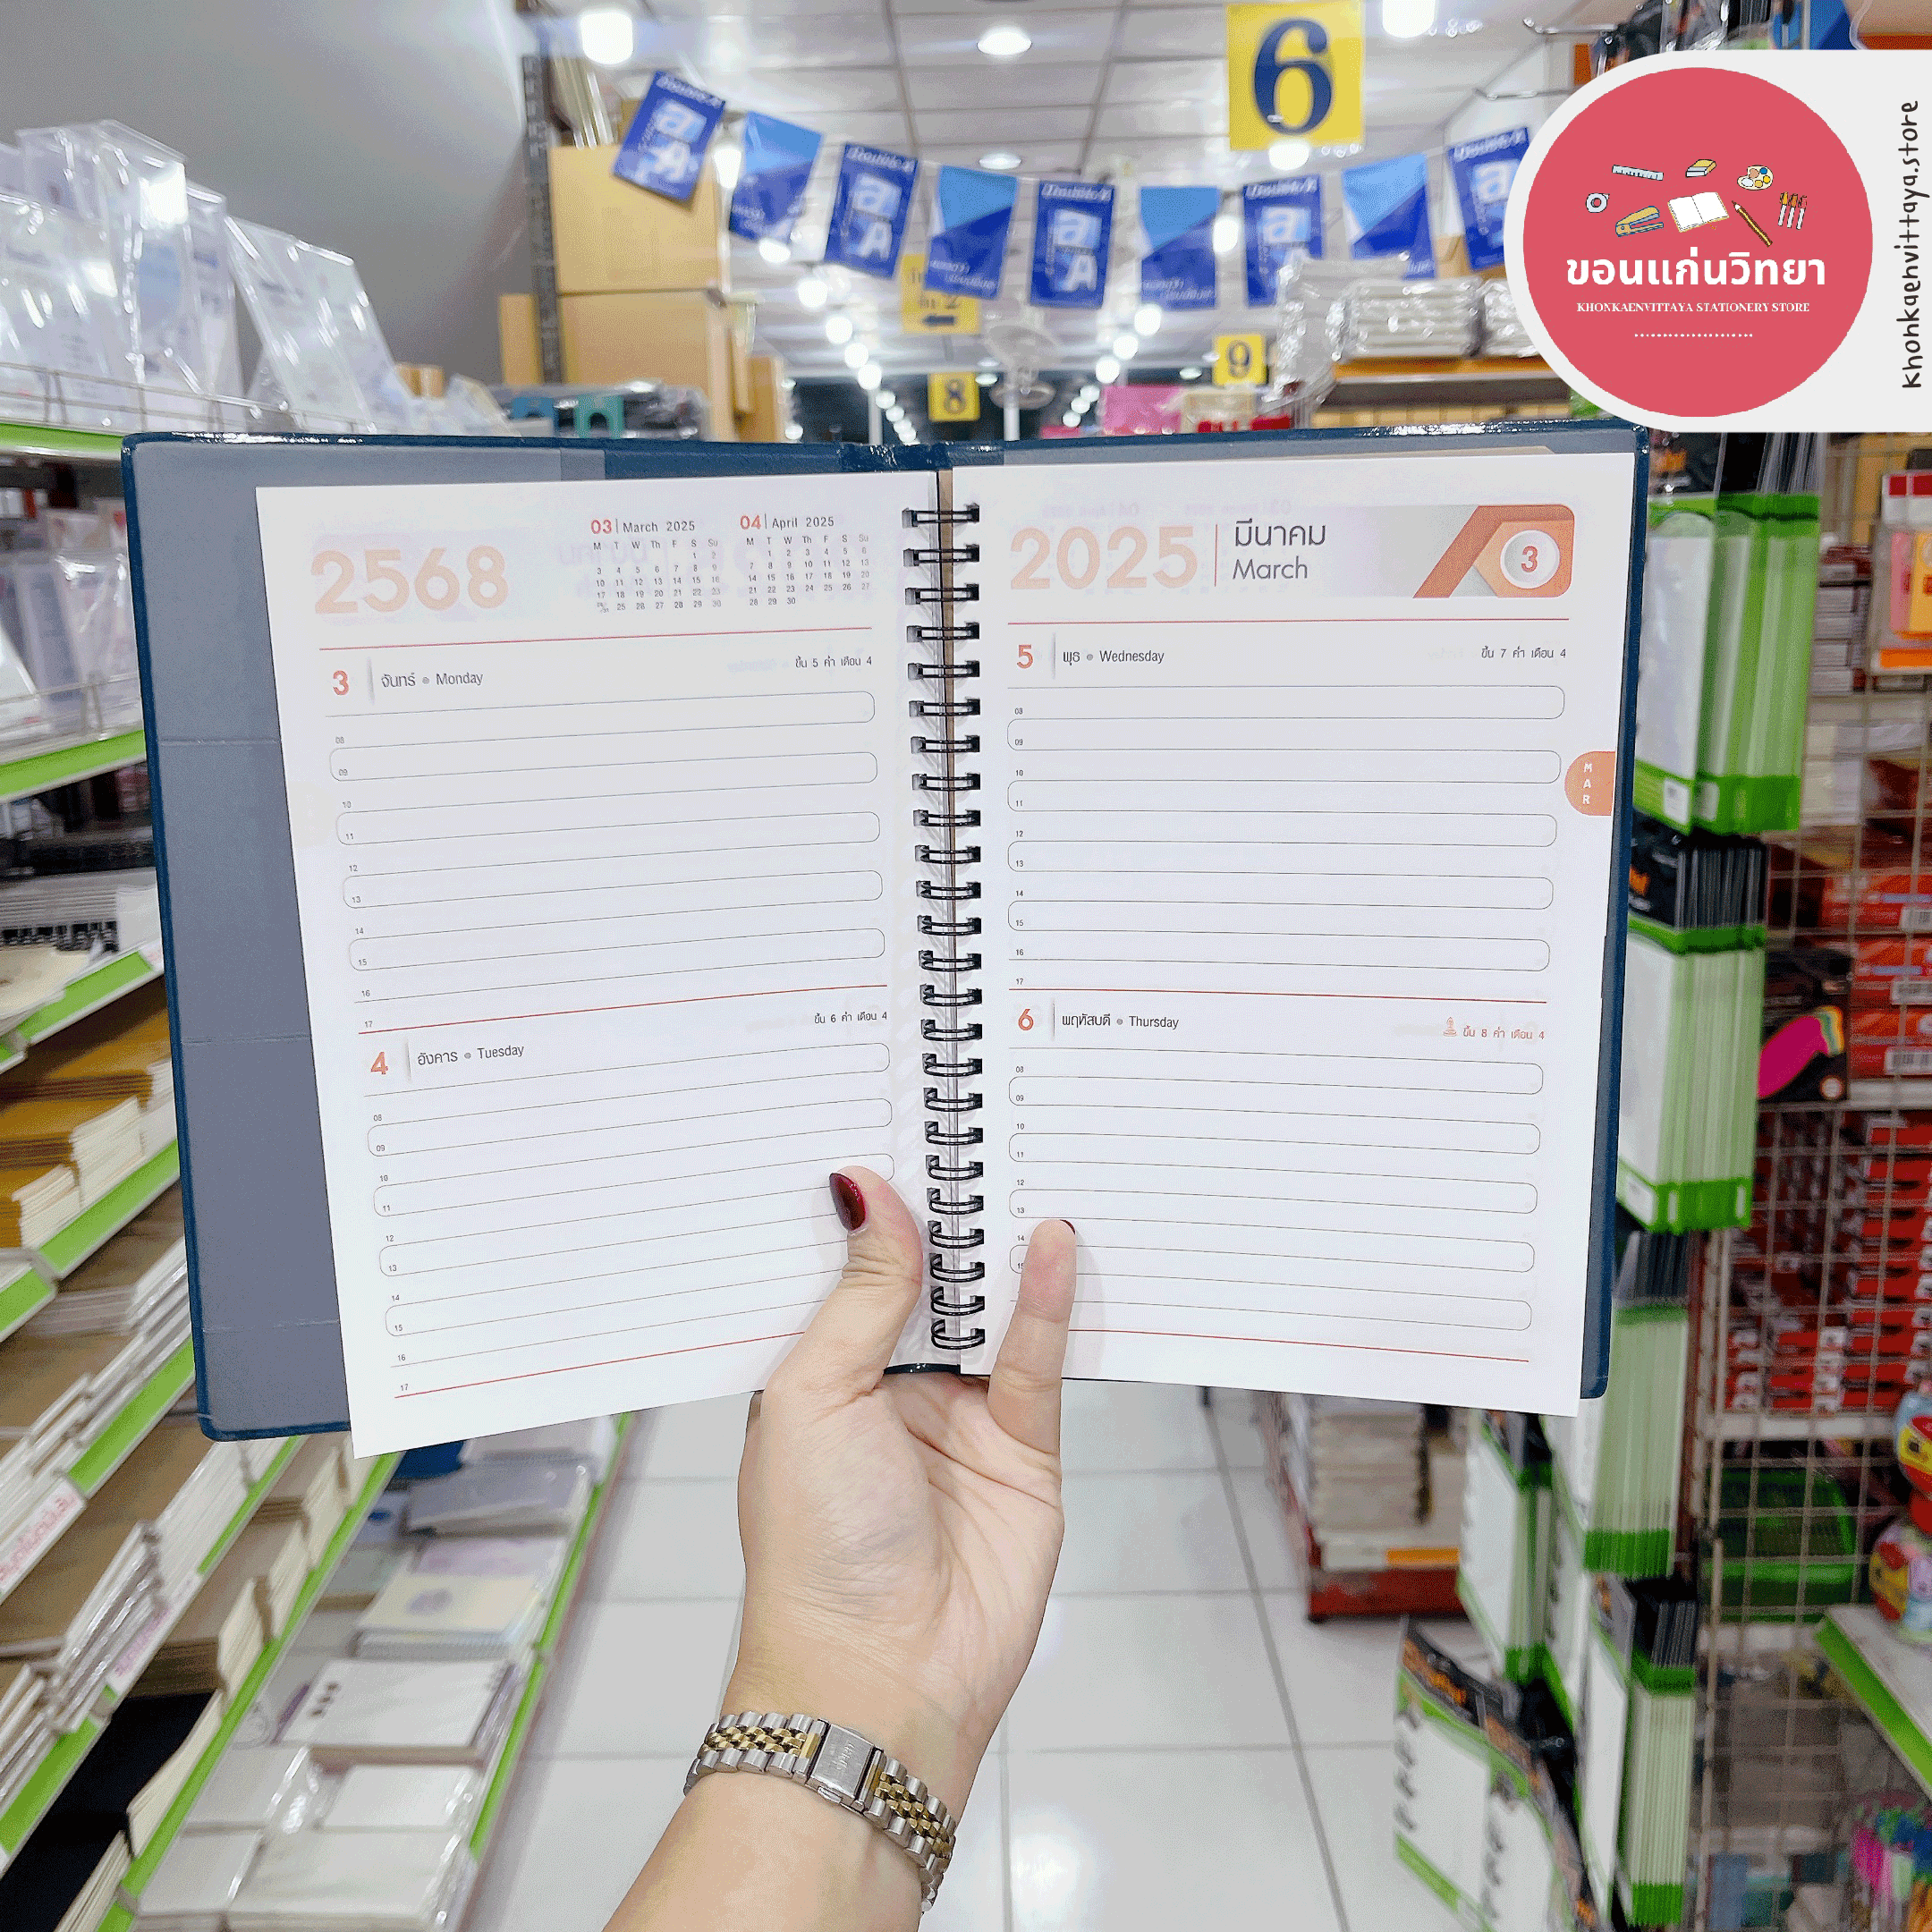 6
Double A
Double A
Double A
Double A
Double A
8
9
ขอนแก่นวิทยา
KHONKAENVITTAYA STATIONERY STORE
khonkaenvittaya.store
2568
03 March 2025
M T W Th F S Su
1 2
3 4 5 6 7 8 9
10 11 12 13 14 15 16
17 18 19 20 21 22 23
24/31 25 26 27 28 29 30
04 April 2025
M T W Th F S Su
1 2 3 4 5 6
7 8 9 10 11 12 13
14 15 16 17 18 19 20
21 22 23 24 25 26 27
28 29 30
3 จันทร์ • Monday
ขึ้น 5 ค่ำ เดือน 4
08
09
10
11
12
13
14
15
16
17
4 อังคาร • Tuesday
ขึ้น 6 ค่ำ เดือน 4
08
09
10
11
12
13
14
15
16
17
2025 มีนาคม
March
3
5 พุธ • Wednesday
ขึ้น 7 ค่ำ เดือน 4
08
09
10
11
12
13
14
15
16
17
MAR
6 พฤหัสบดี • Thursday
ขึ้น 8 ค่ำ เดือน 4
08
09
10
11
12
13
14